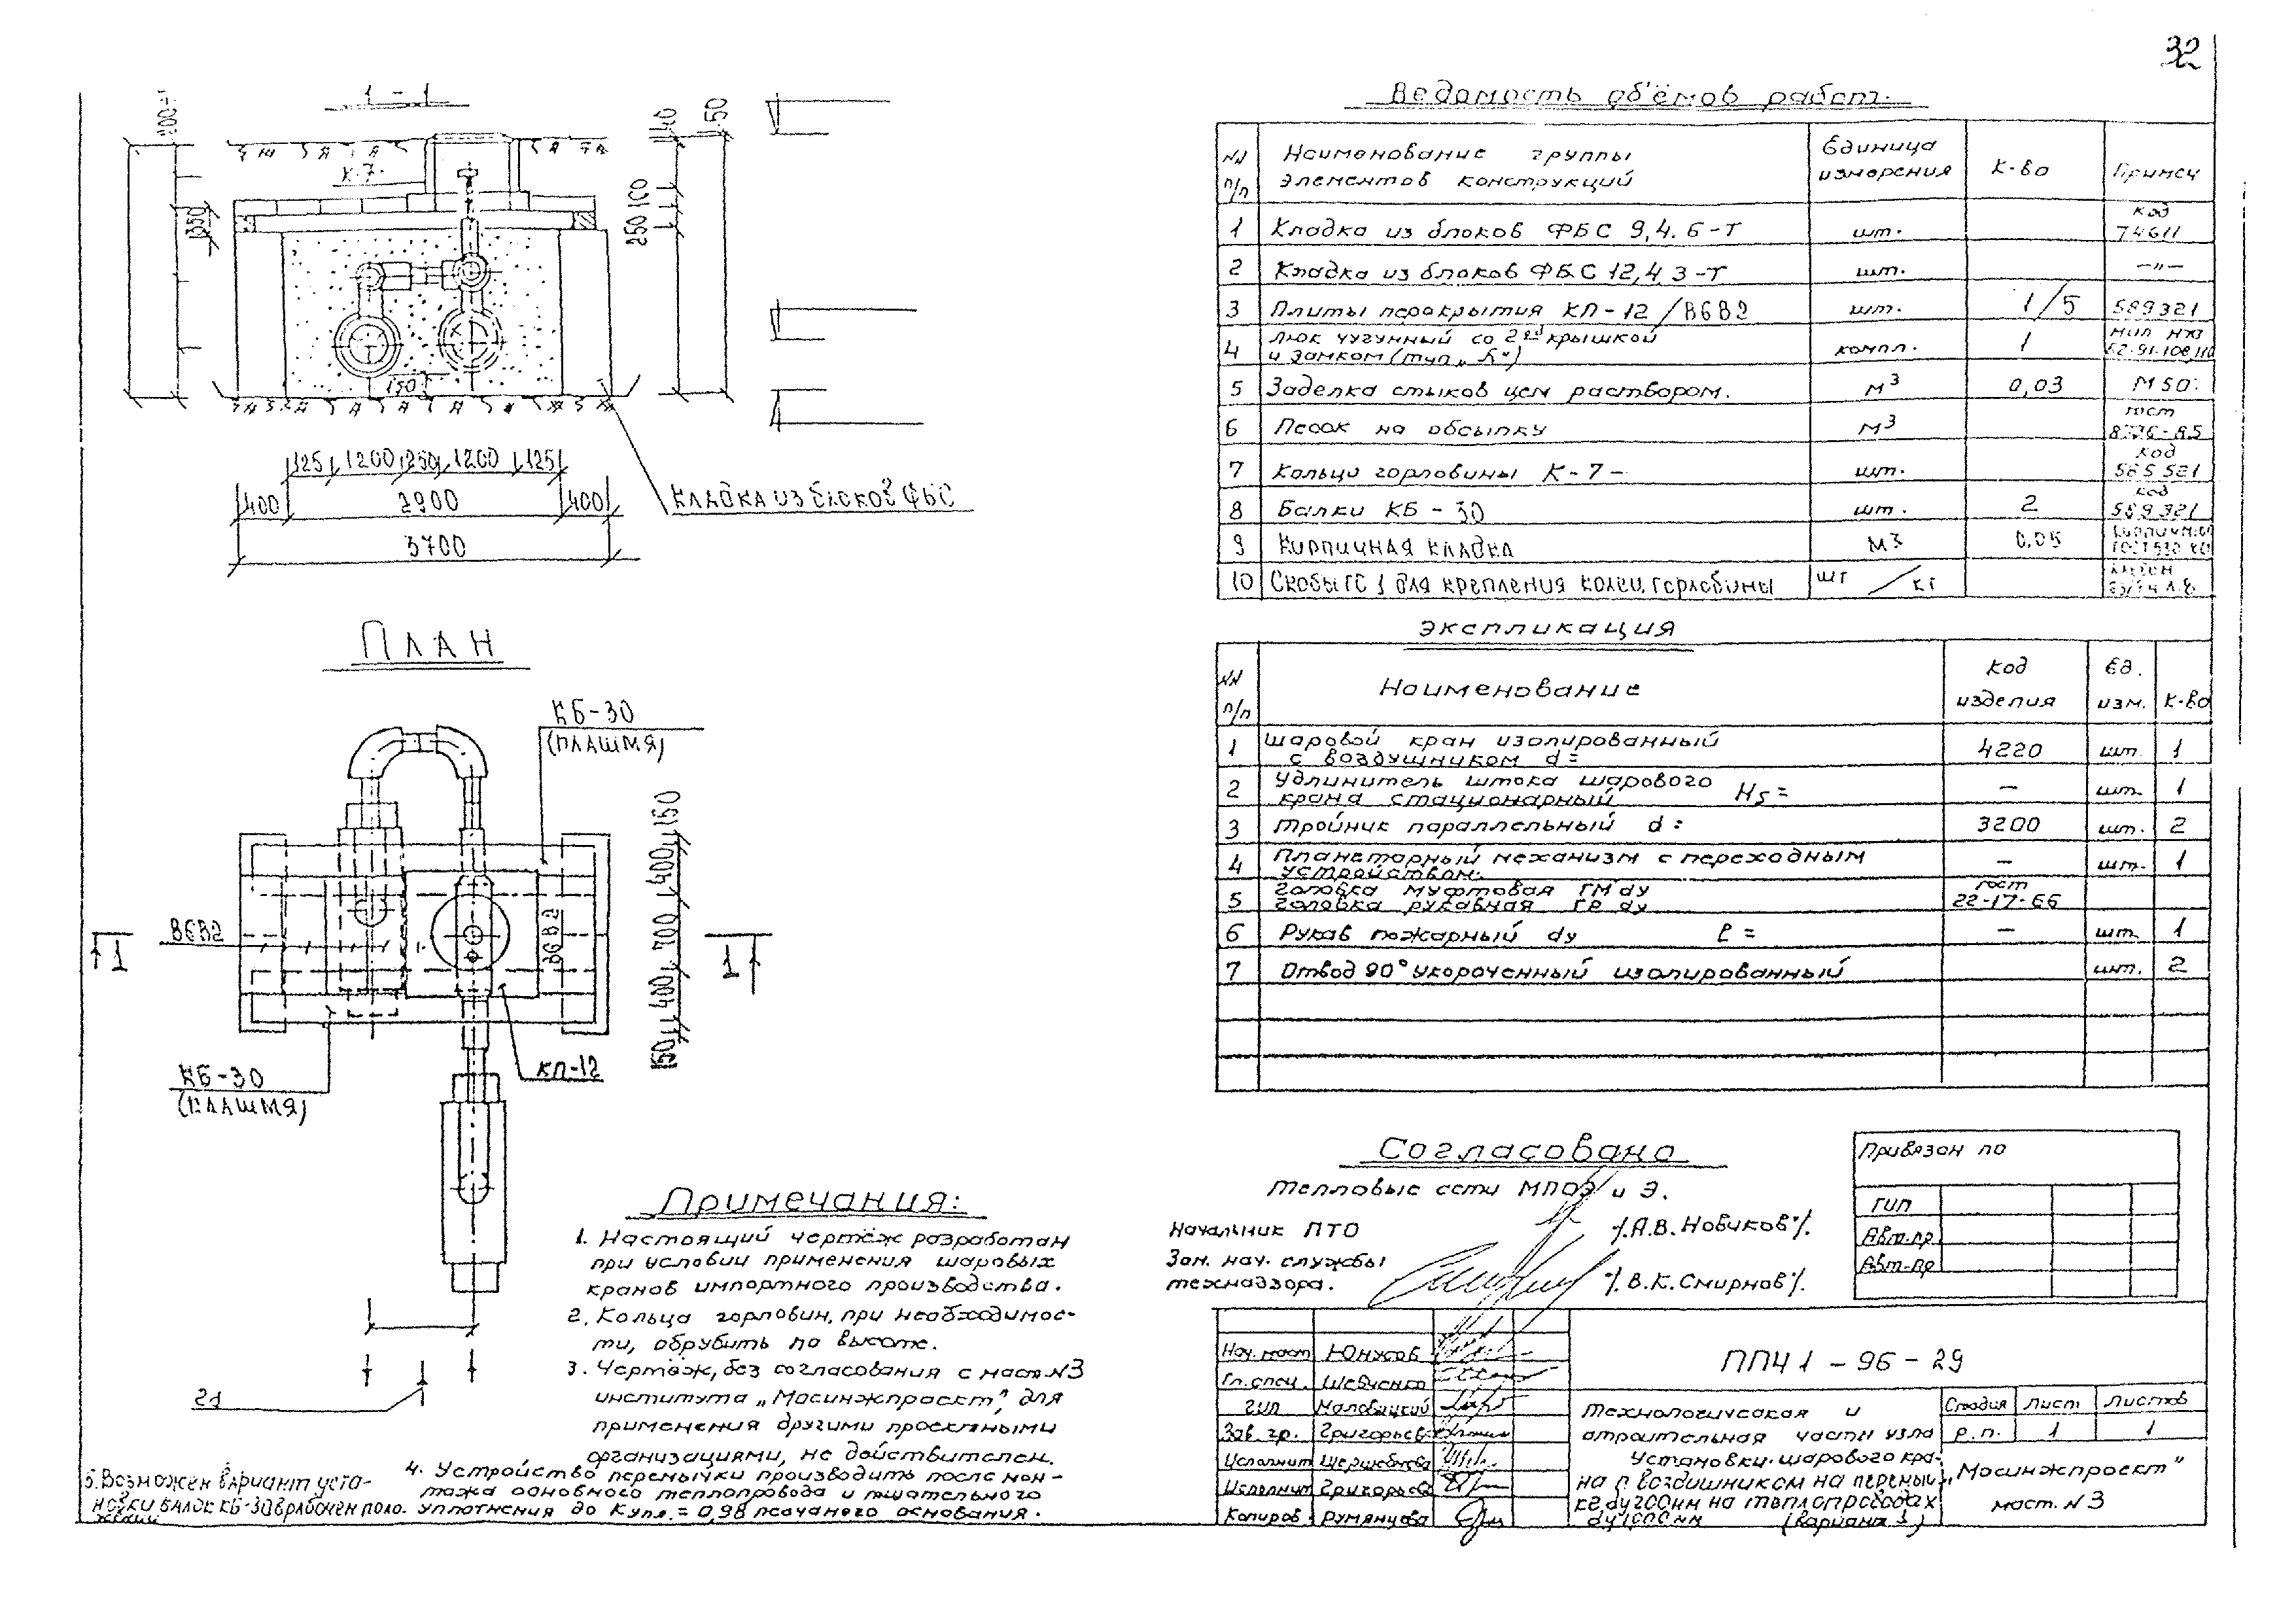 32
1 - 1
К-7
150
140
50
250 100
150
125 1200 250 1200 125
400 2900 400
3700
КЛАДКА ИЗ БЛОКОВ ФБС
ПЛАН
КБ-30
(ПЛАШМЯ)
В6В2
В6В2
1
1
150 400 700 400 150
КП-12
КБ-30
(ПЛАШМЯ)
Примечания:
1. Настоящий чертёж разработан
при условии применения шаровых
кранов импортного производства.
2. Кольца горловин, при необходимос-
ти, обрубить по высоте.
3. Чертёж, без согласования с маст №3
института „Мосинжпроект", для
применения другими проектными
организациями, не действителен.
4. Устройство перемычки производить после мон-
тажа основного теплопровода и тщательного
уплотнения до Купл. = 0,98 песчаного основания.
5. Возможен вариант уста-
новки балок КБ-30 в рабочем поло-
жении
Ведомость объёмов работ.
NN п/п Наименование группы элементов конструкций Единица измерения К-во Примеч
1 Кладка из блоков ФБС 9,4.6-Т шт. код 74611
2 Кладка из блоков ФБС 12,4 3-Т шт. —"—
3 Плиты перекрытия КП-12/В6В2 шт. 1/5 589321
4 Люк чугунный со 2ой крышкой и замком (тип „Б") компл. 1
5 Заделка стыков цем раствором. м3 0,03 М50.
6 Песок на обсыпку м3 гост 8736-85
7 Кольцо горловины К-7- шт. код 585521
8 Балки КБ-30 шт. 2 код 589321
9 Кирпичная кладка м3 0,05
10 Скобы ГС 1 для крепления колец горловины шт/кг
Экспликация
NN п/п Наименование Код изделия Ед. изм. К-во
1 Шаровой кран изолированный с воздушником d= 4220 шт. 1
2 Удлинитель штока шарового крана стационарный Hs= — шт. 1
3 Тройник параллельный d= 3200 шт. 2
4 Планетарный механизм с переходным устройством. — шт. 1
5 Головка муфтовая ГМ dy Головка рукавная ГР dy гост 22-17-66
6 Рукав пожарный dy ℓ= — шт. 1
7 Отвод 90° укороченный изолированный шт. 2
Согласовано
Тепловые сети МПОЭ и Э.
Начальник ПТО /.А.В.Новиков/.
Зам. нач. службы
технадзора. /.В.К.Смирнов/.
Привязан по
ГИП
Авт.пр
Авт.пр
Нач. маст Юнусов
Гл. спец.
ГИП Маловицкий
Зав. гр. Григорьев
Исполнит
Исполнит Григорьев
Копиров Румянцева
ППЧ1-96-29
Технологическая и
строительная части узла
установки шарового кра-
на с воздушником на перемыч-
ке dy200мм на теплопроводах
dy1000мм (вариант 1)
Стадия Лист Листов
Р.П. 1 1
„Мосинжпроект"
маст. N3